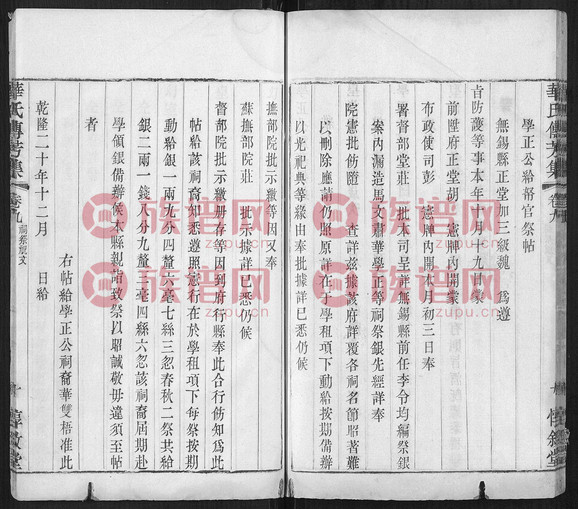 學正公給帑官祭帖
無錫縣正堂加三級魏　為遵
旨防護等事本年十月十九日蒙
前陞府正堂胡　憲牌內開蒙
布政使司彭　憲牌內開本月初三日奉
署督部堂莊　批本司呈詳無錫縣前任李令均編祭銀
案內漏造馬文肅華學正等祠祭銀先經詳奉
院憲批飭隨　查詳茲據該府詳覆各祠名節昭著難
以刪除應請仍照原詳在于學租項下動給按期備辦
以光祀典等緣由奉批據詳已悉仍候
撫部院批示繳等因又奉
蘇撫部院莊　批示據詳已悉仍候
督部院批示繳冊存等因到府行縣奉此合行飭知為此
帖給該祠裔知悉遵照憲行在於學租項下每祭按期
動給銀一兩九分四釐六毫七絲三忽春秋二祭共給
銀二兩一錢八分九釐三毫四絲六忽該祠裔屆期赴
學領銀備辦候本縣親詣致祭以昭誠敬毋違須至帖
者
右帖給學正公祠裔華雙梧准此
乾隆二十年十二月　日給
華氏傳芳集
卷九
祠祭類文
族譜網
zupu.cn